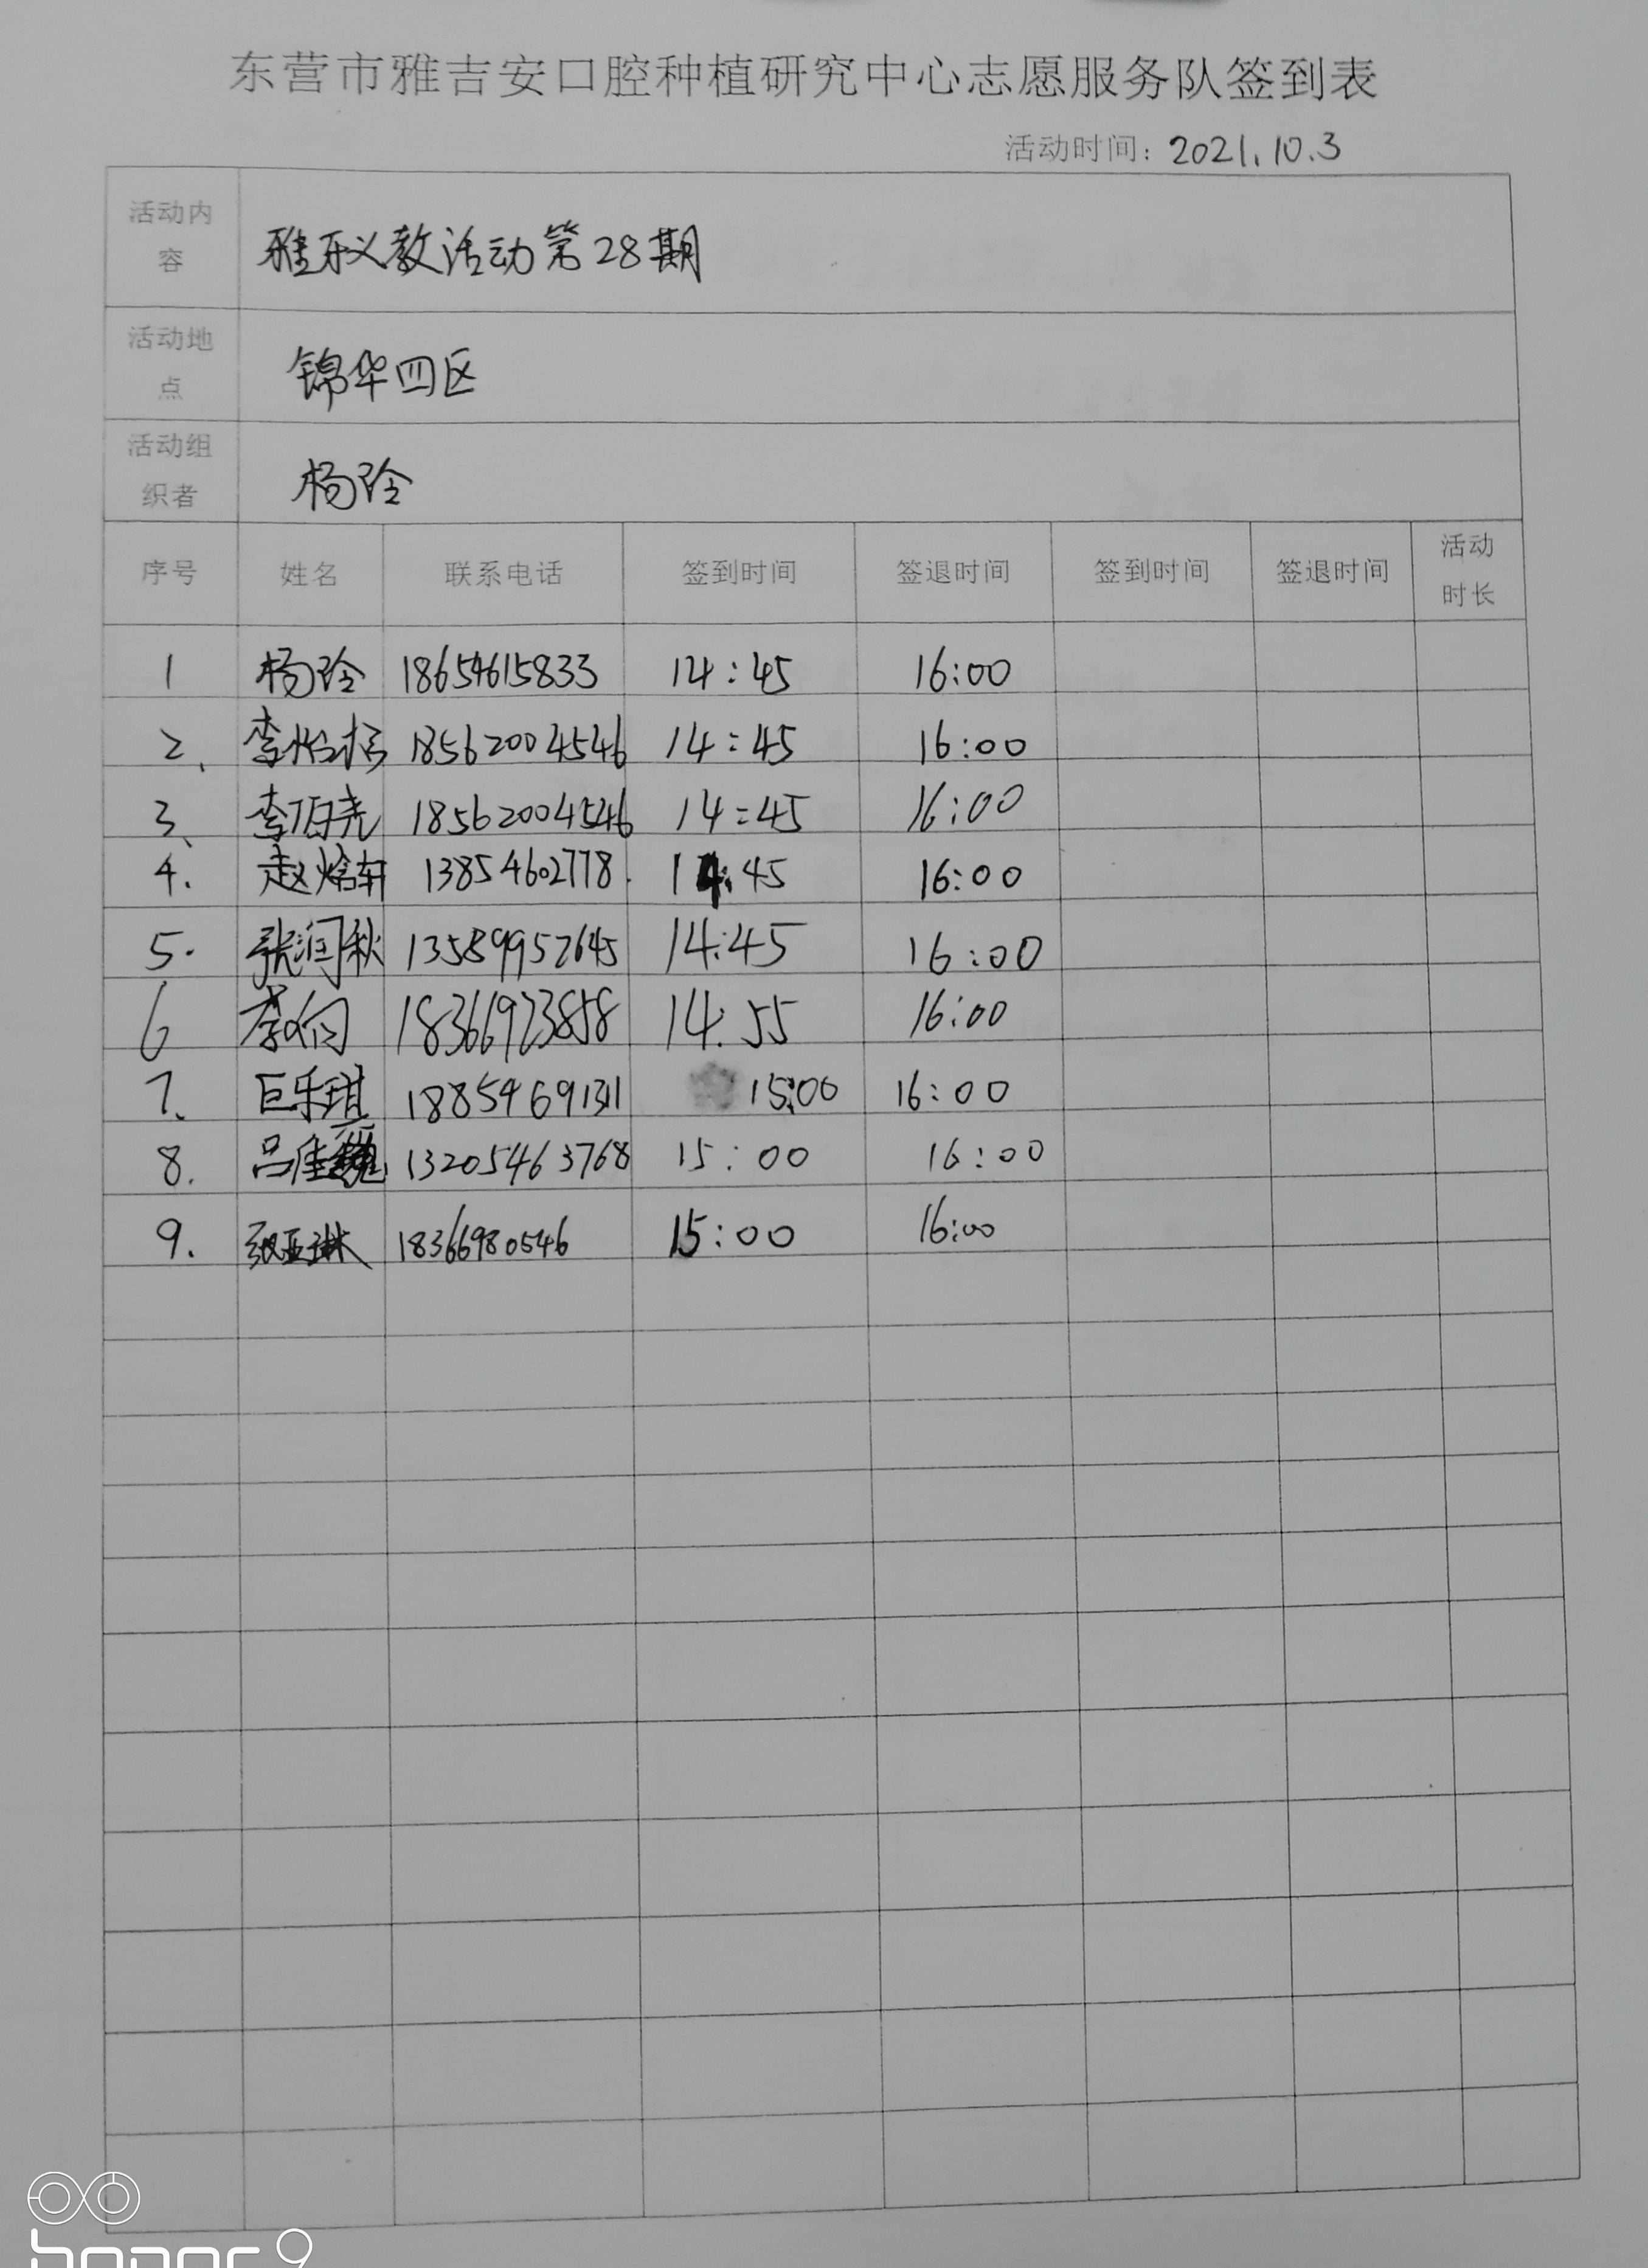 东营市雅吉安口腔种植研究中心志愿服务队签到表
活动时间: 2021.10.3
活动内容 雅乐义教活动第28期
活动地点 锦华四区
活动组织者 杨玲
序号 姓名 联系电话 签到时间 签退时间 签到时间 签退时间 活动时长
1 杨玲 18654615833 14:45 16:00
2、 李怡 18562004546 14:45 16:00
3、 李佰尧 18562004546 14:45 16:00
4. 赵焓轩 13854602778. 14:45 16:00
5. 张润秋 13589952645 14:45 16:00
6 李向 18366923858 14:55 16:00
7、 巨乐琪 18854691311 15:00 16:00
8. 吕佳 13205463768 15:00 16:00
9. 张亚琳 18366980546 15:00 16:00
honor 9